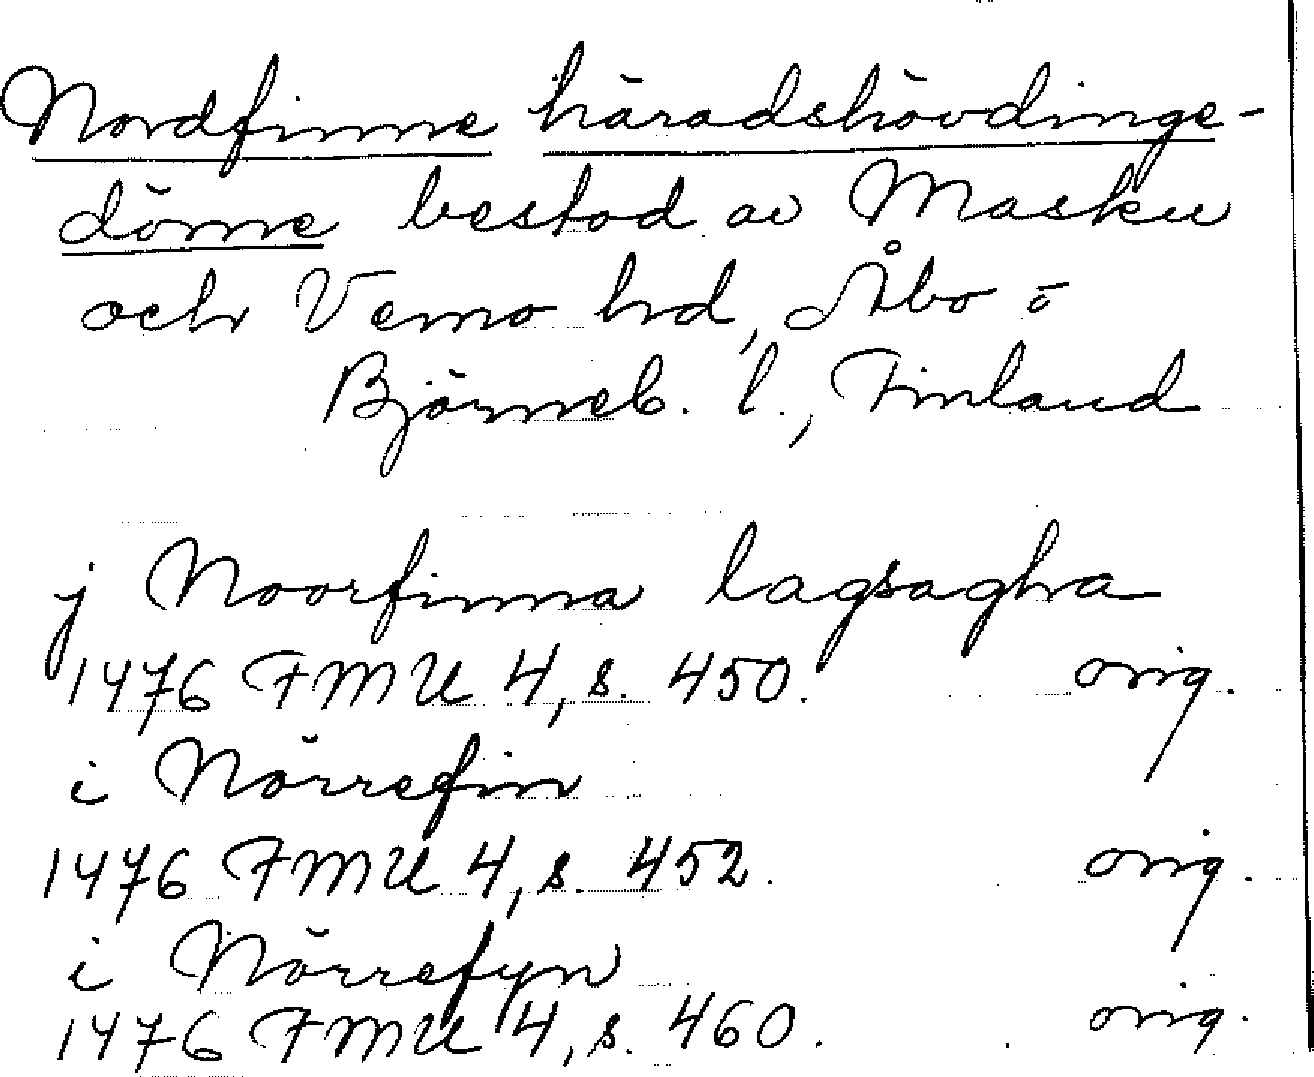 Nordfinne häradshövdinge-
döme bestod av Masku
och Vemo hrd, Åbo o
Björneb. l., Finland
j Noorfinna lagsagha
1476 FMU 4, s. 450. orig.
i Nörrefin
1476 FMU 4, s. 452. orig.
i Nörrefyn
1476 FMU 4, s. 460. orig.